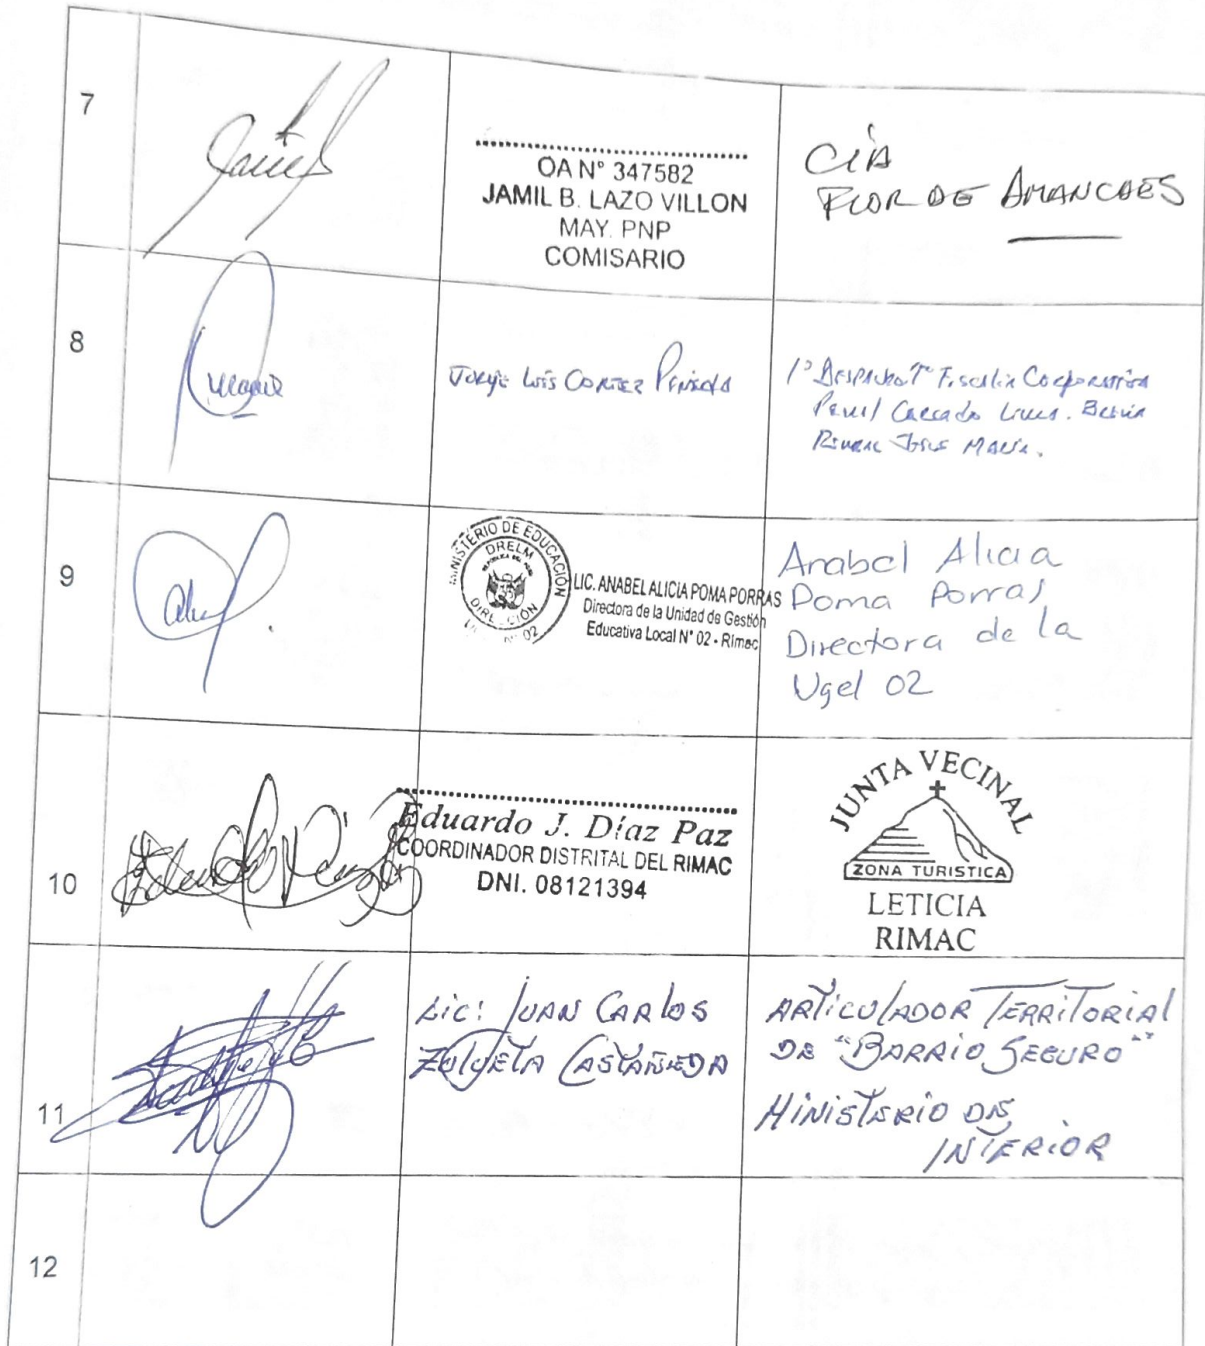 7
OA N° 347582
JAMIL B. LAZO VILLON
MAY. PNP
COMISARIO
CIA
FLOR DE AMANCAES
8
Jorge Luis Cortez
1° Despacho Fiscalia Corporativa
Penal
Rimac Jesus Maria.
9
MINISTERIO DE EDUCACIÓN
DRELM
DIRECCIÓN
N° 02
LIC. ANABEL ALICIA POMA PORRAS
Directora de la Unidad de Gestión
Educativa Local N° 02 - Rimac
Anabel Alicia
Poma Porras
Directora de la
Ugel 02
10
Eduardo J. Díaz Paz
COORDINADOR DISTRITAL DEL RIMAC
DNI. 08121394
JUNTA VECINAL
ZONA TURISTICA
LETICIA
RIMAC
11
Lic: JUAN CARLOS
ZULUETA CASTAÑEDA
ARTICULADOR TERRITORIAL
DE "BARRIO SEGURO"
MINISTERIO DE
INTERIOR
12